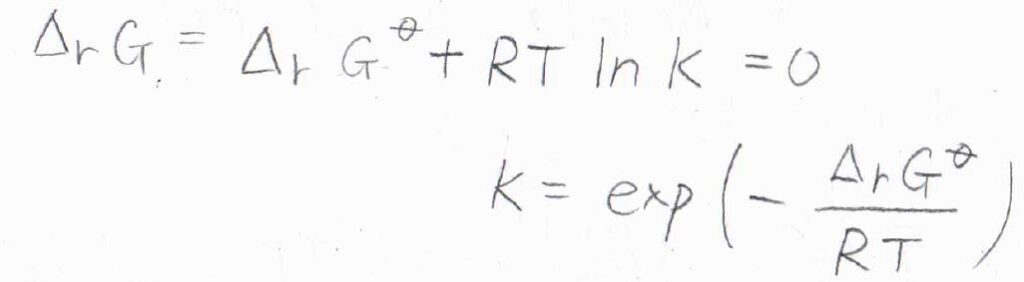 ΔrG = ΔrG⦵ + RT ln K = 0
K = exp(− ΔrG⦵ / RT)